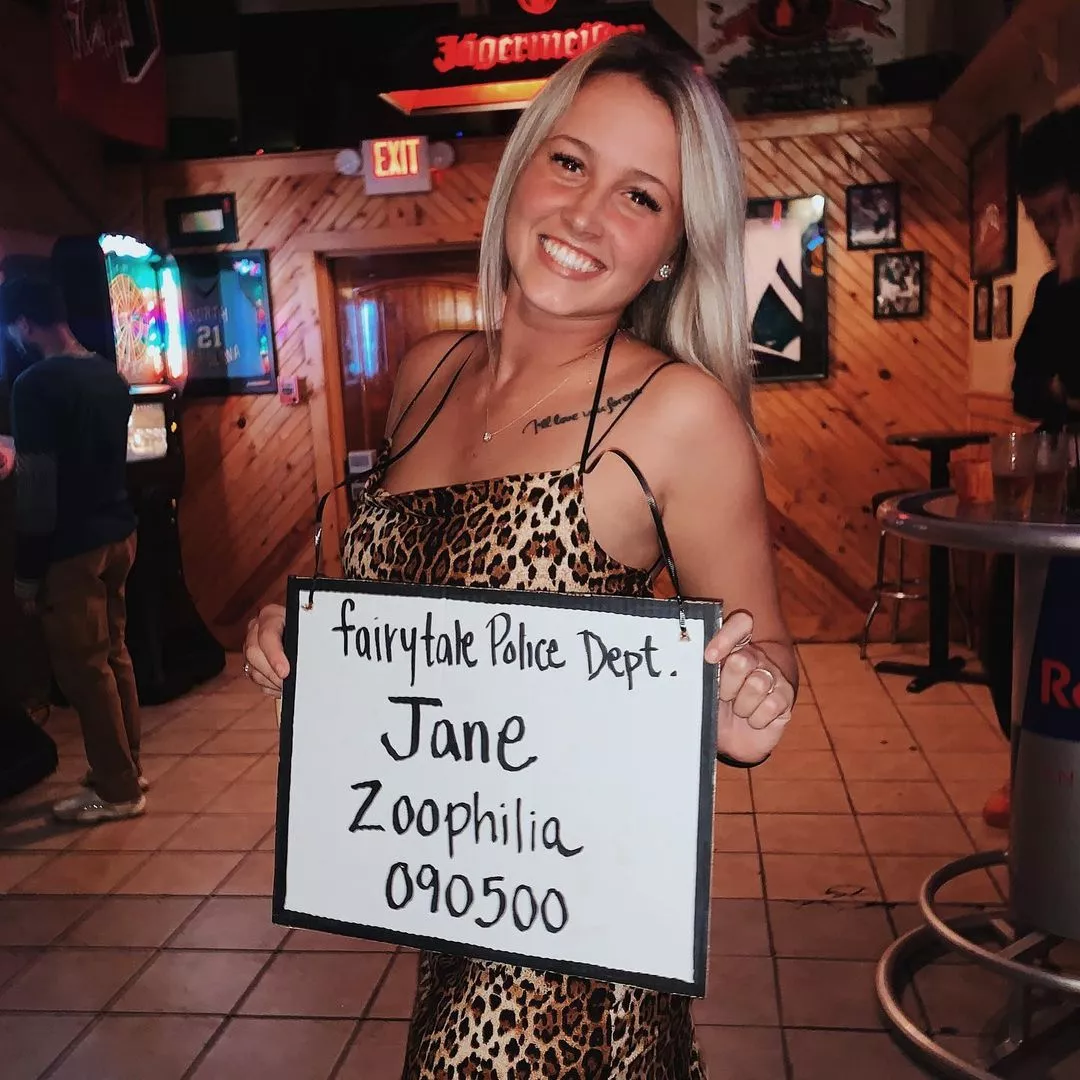 Jägermeister
EXIT
NORTH
21
I'll love you forever
fairytale Police Dept.
Jane
Zoophilia
090500
Re